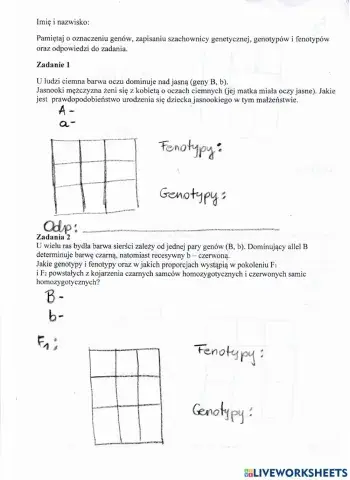 Imię i nazwisko:
Pamiętaj o oznaczeniu genów, zapisaniu szachownicy genetycznej, genotypów i fenotypów
oraz odpowiedzi do zadania.
Zadanie 1
U ludzi ciemna barwa oczu dominuje nad jasną (geny B, b).
Jasnooki mężczyzna żeni się z kobietą o oczach ciemnych (jej matka miała oczy jasne). Jakie
jest prawdopodobieństwo urodzenia się dziecka jasnookiego w tym małżeństwie.
A -
a -
Fenotypy :
Genotypy :
Odp:
Zadania 2
U wielu ras bydła barwa sierści zależy od jednej pary genów (B, b). Dominujący allel B
determinuje barwę czarną, natomiast recesywny b – czerwoną.
Jakie genotypy i fenotypy oraz w jakich proporcjach wystąpią w pokoleniu F₁
i F₂ powstałych z kojarzenia czarnych samców homozygotycznych i czerwonych samic
homozygotycznych?
B -
b -
F₁ :
Fenotypy :
Genotypy :
LIVEWORKSHEETS